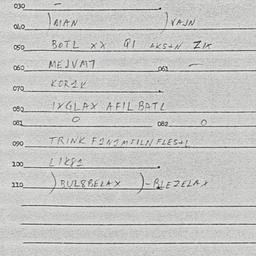 030 -
040 )AIAN )VAJN
050 BOTL XX QI AKS+N ZIK
060 MEJVM7 061 -
070 KOR1K
080 IXGLAX AFIL BATL
081 0 082 0
090 TRINK F1N1MTILN FLES+L
100 LIK81
110 )BUL8BELAX )-BLEZELAX